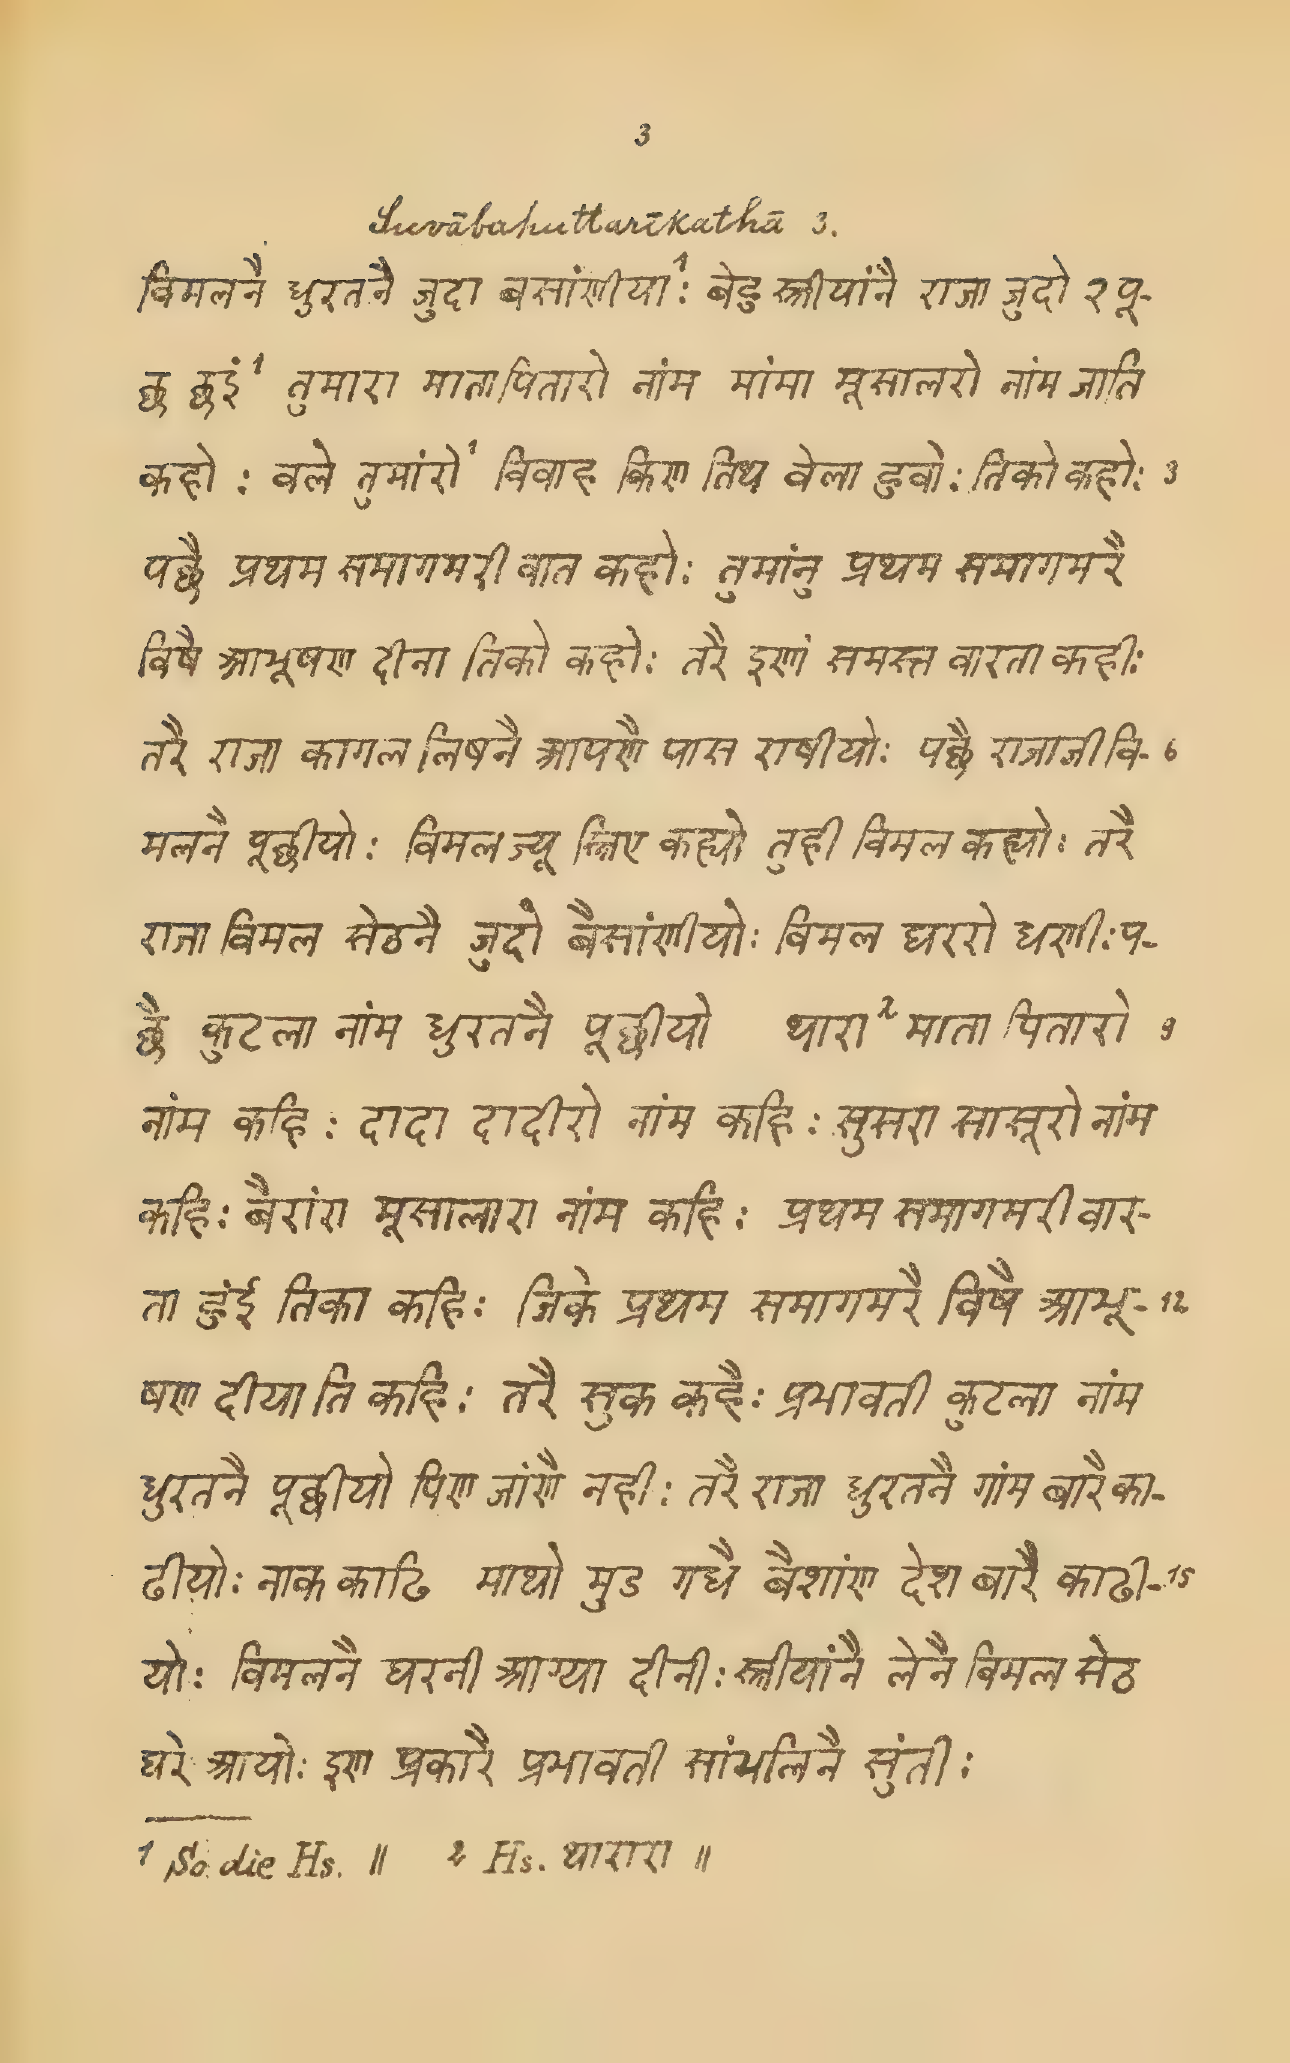 3
Suvābahuttarīkathā 3.
विमलनै धुरतनै जुदा बसांणीया¹: बेहु स्त्रीयांनै राजा जुदो २ पू-
छ छइं¹ तुमारा मातापितारो नांम मांमा मूसालरो नांम जाति
कहो : वले तुमांरो¹ विवाह किण तिथ वेला हुवो: तिको कहो: 3
पछै प्रथम समागमरी वात कहो: तुमांनु प्रथम समागमरै
विषै आभूषण दीना तिको कहो: तरै इणं समस्त वारता कही:
तरै राजा कागल लिषनै आपणै पास राषीयो: पछै राजाजी वि- 6
मलनै पूछीयो: विमल ज्यू स्त्रिए कह्यो तुही विमल कह्यो: तरै
राजा विमल सेठनै जुदो बैसांणीयो: विमल घररो धणी: प-
छै कुटला नांम धुरतनै पूछीयो थारा² माता पितारो 9
नांम कहि : दादा दादीरो नांम कहि : सुसरा सासूरो नांम
कहि: बैरांरा मूसालारा नांम कहि: प्रथम समागमरी वार-
ता हुंई तिका कहि: जिके प्रथम समागमरै विषै आभू- 12
षण दीया ति कहि: तरै सुक कहै: प्रभावती कुटला नांम
धुरतनै पूछीयो पिण जांणै नही: तरै राजा धुरतनै गांम बारै का-
ढीयो: नाक काढि माथो मुड गधै बैशांण देश बारै काढी- 15
यो: विमलनै घरनी आग्या दीनी: स्त्रीयांनै लेनै विमल सेठ
घरे आयो: इण प्रकारै प्रभावती सांभलिनै सुंती:
1 So die Hs. ॥ 2 Hs. थारारा ॥